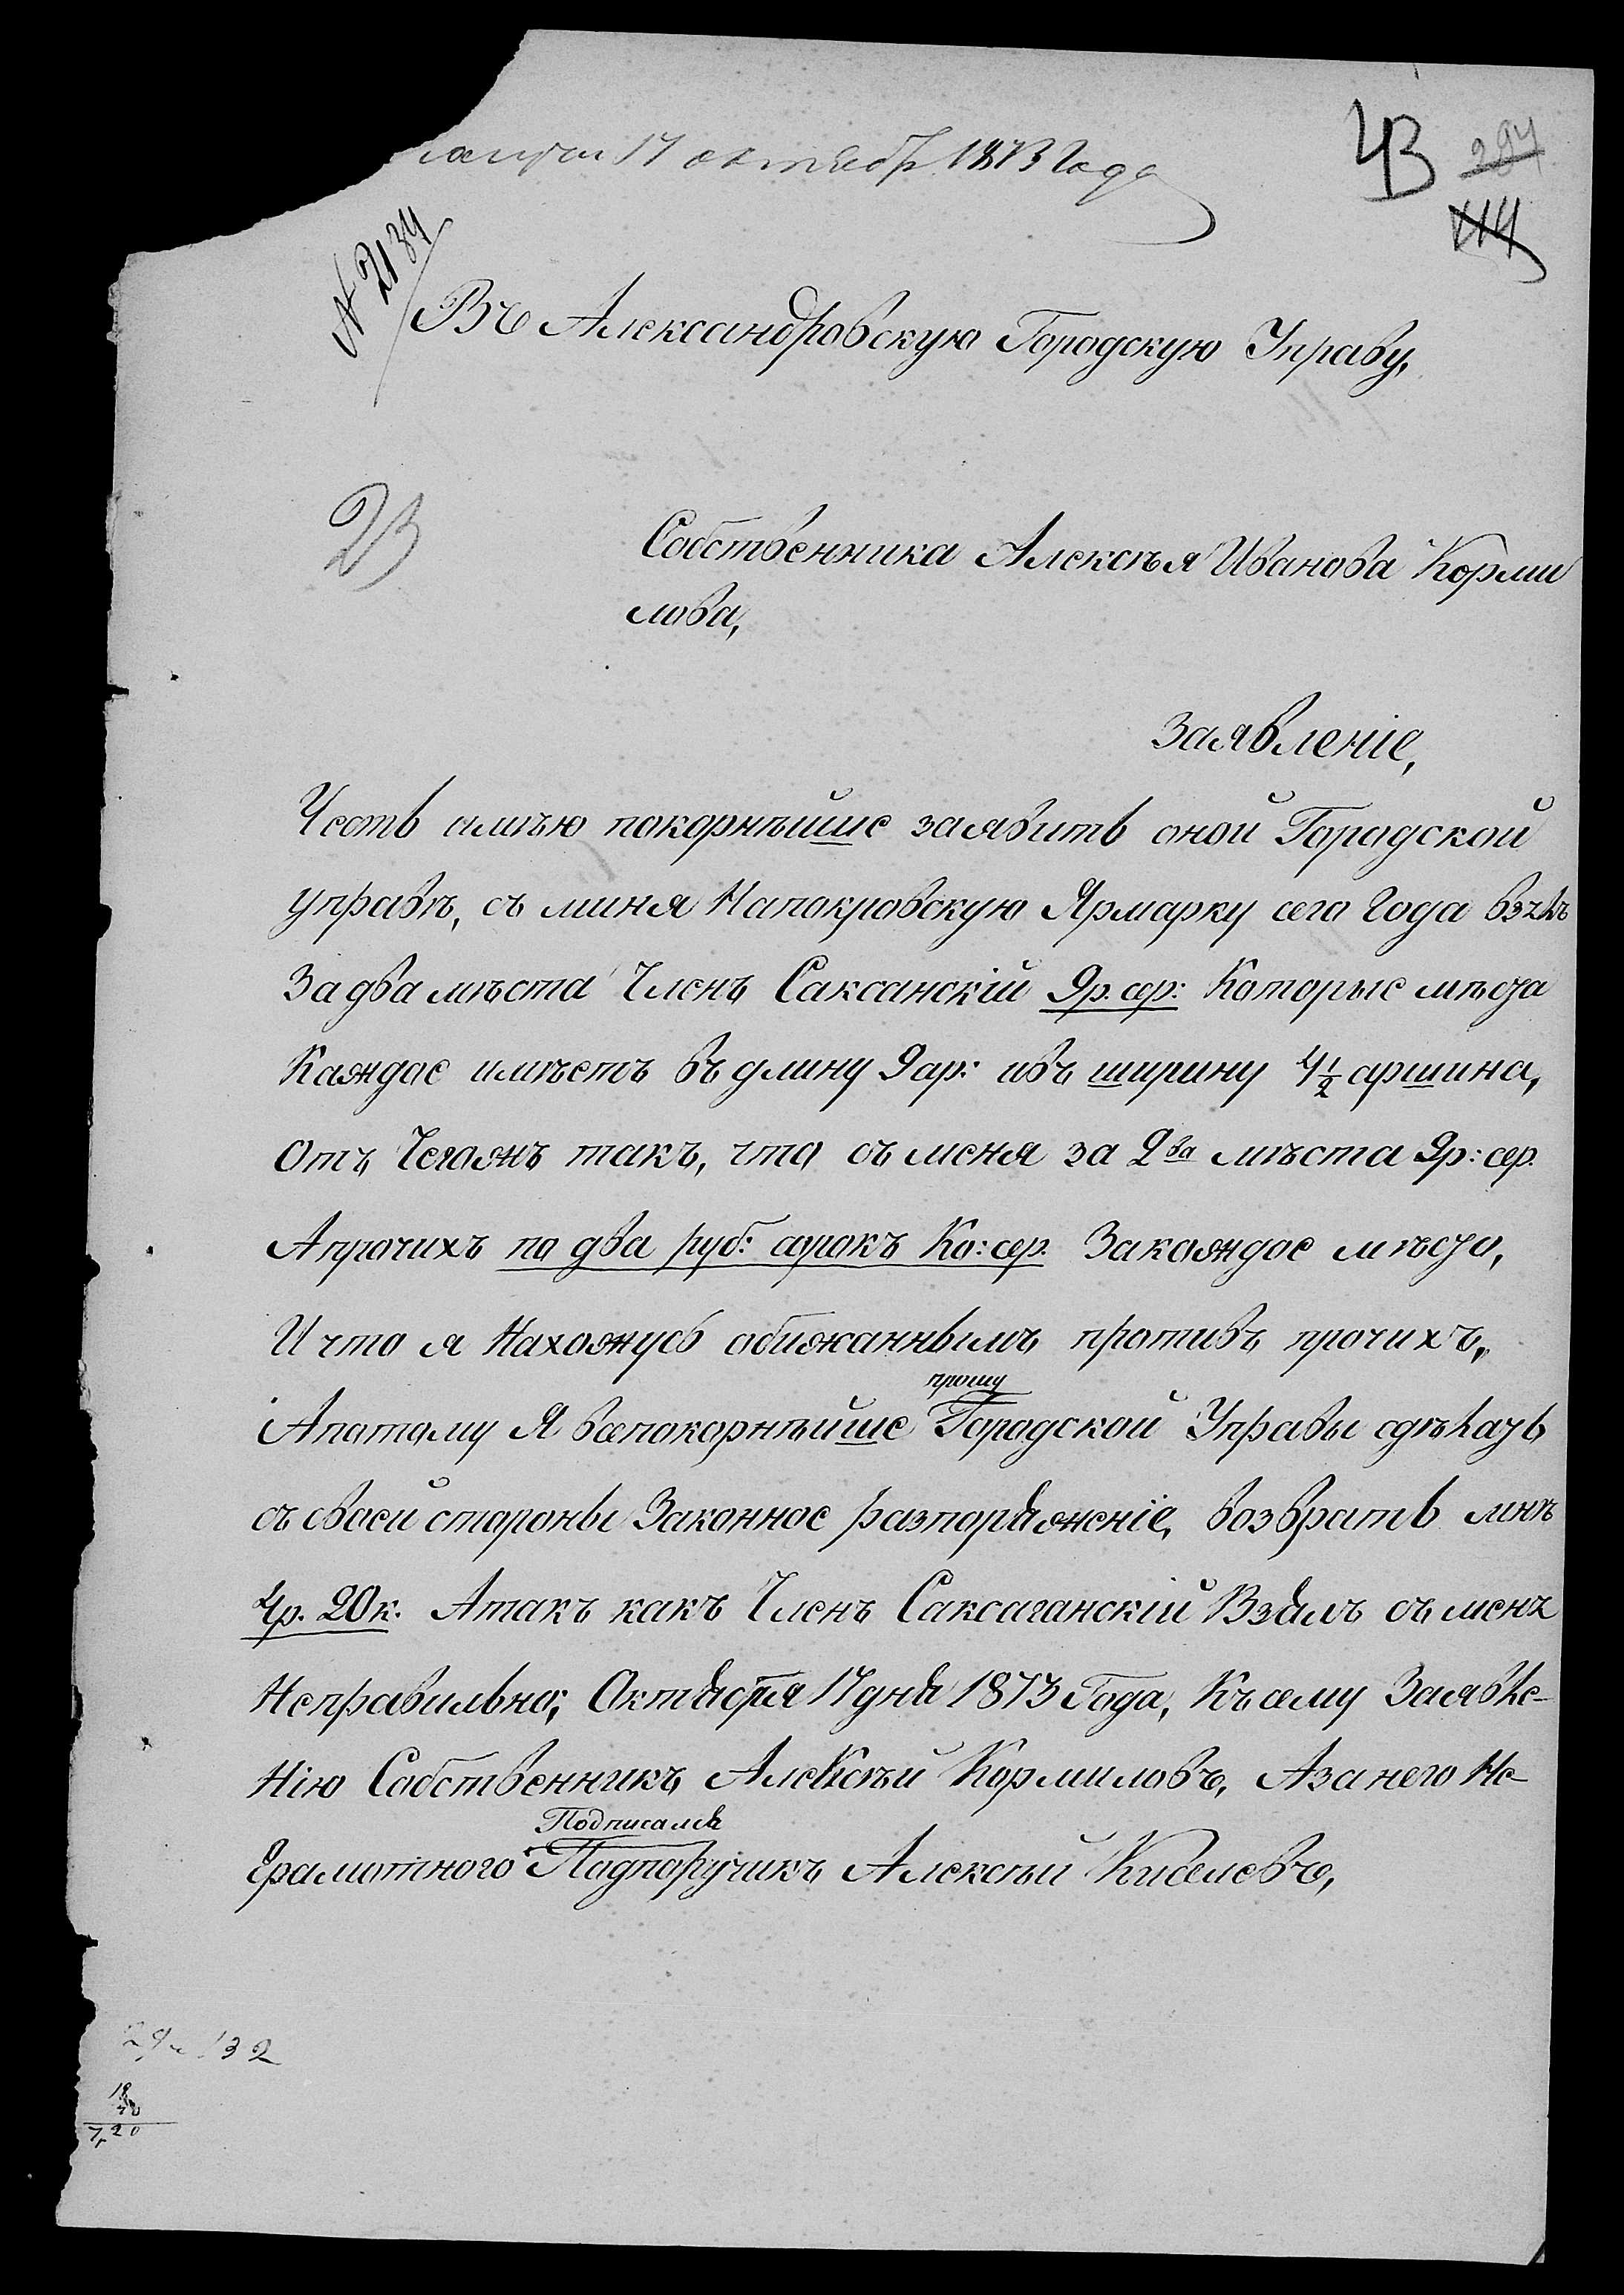 17 октября 1873 Года
43
294
114
№ 2134
Въ Александровскую Городскую Управу,
23
Собственника Алексѣя Иванова Корми
лова,
Заявленіе,
Честь имѣю покорнѣйше заявить оной Городской
управѣ, съ миня Напокровскую Ярмарку сего Года
За два мѣста Членъ Саксанскій 9р. сер: Которые мѣста
Каждое имѣетъ въ длину 9 ар: ивъ ширину 4½ аршина,
Отъ Чегожъ такъ, что съ меня за 2ва мѣста 9р: сер.
Апрочихъ по два руб: сорокъ Ко: сер. Закаждое мѣсто,
И что я Нахожусь обижаннымъ противъ прочихъ,
прошу
Апотому Я всепокорнѣйше Городской Управы сдѣлать
съ своей стороны Законное разпоряженіе, возвратъ мнѣ
4р. 20 к. Атакъ какъ Членъ Саксаганскій Взялъ съ меня
Неправильно; Октября 17 дня 1873 Года, Къ сему Заявле-
Нію Собственникъ Алексѣй Кормиловъ, Азанего Не-
Подписался
Грамотного Подпоручикъ Алексѣй Киселевъ,
132
18
40
7,20